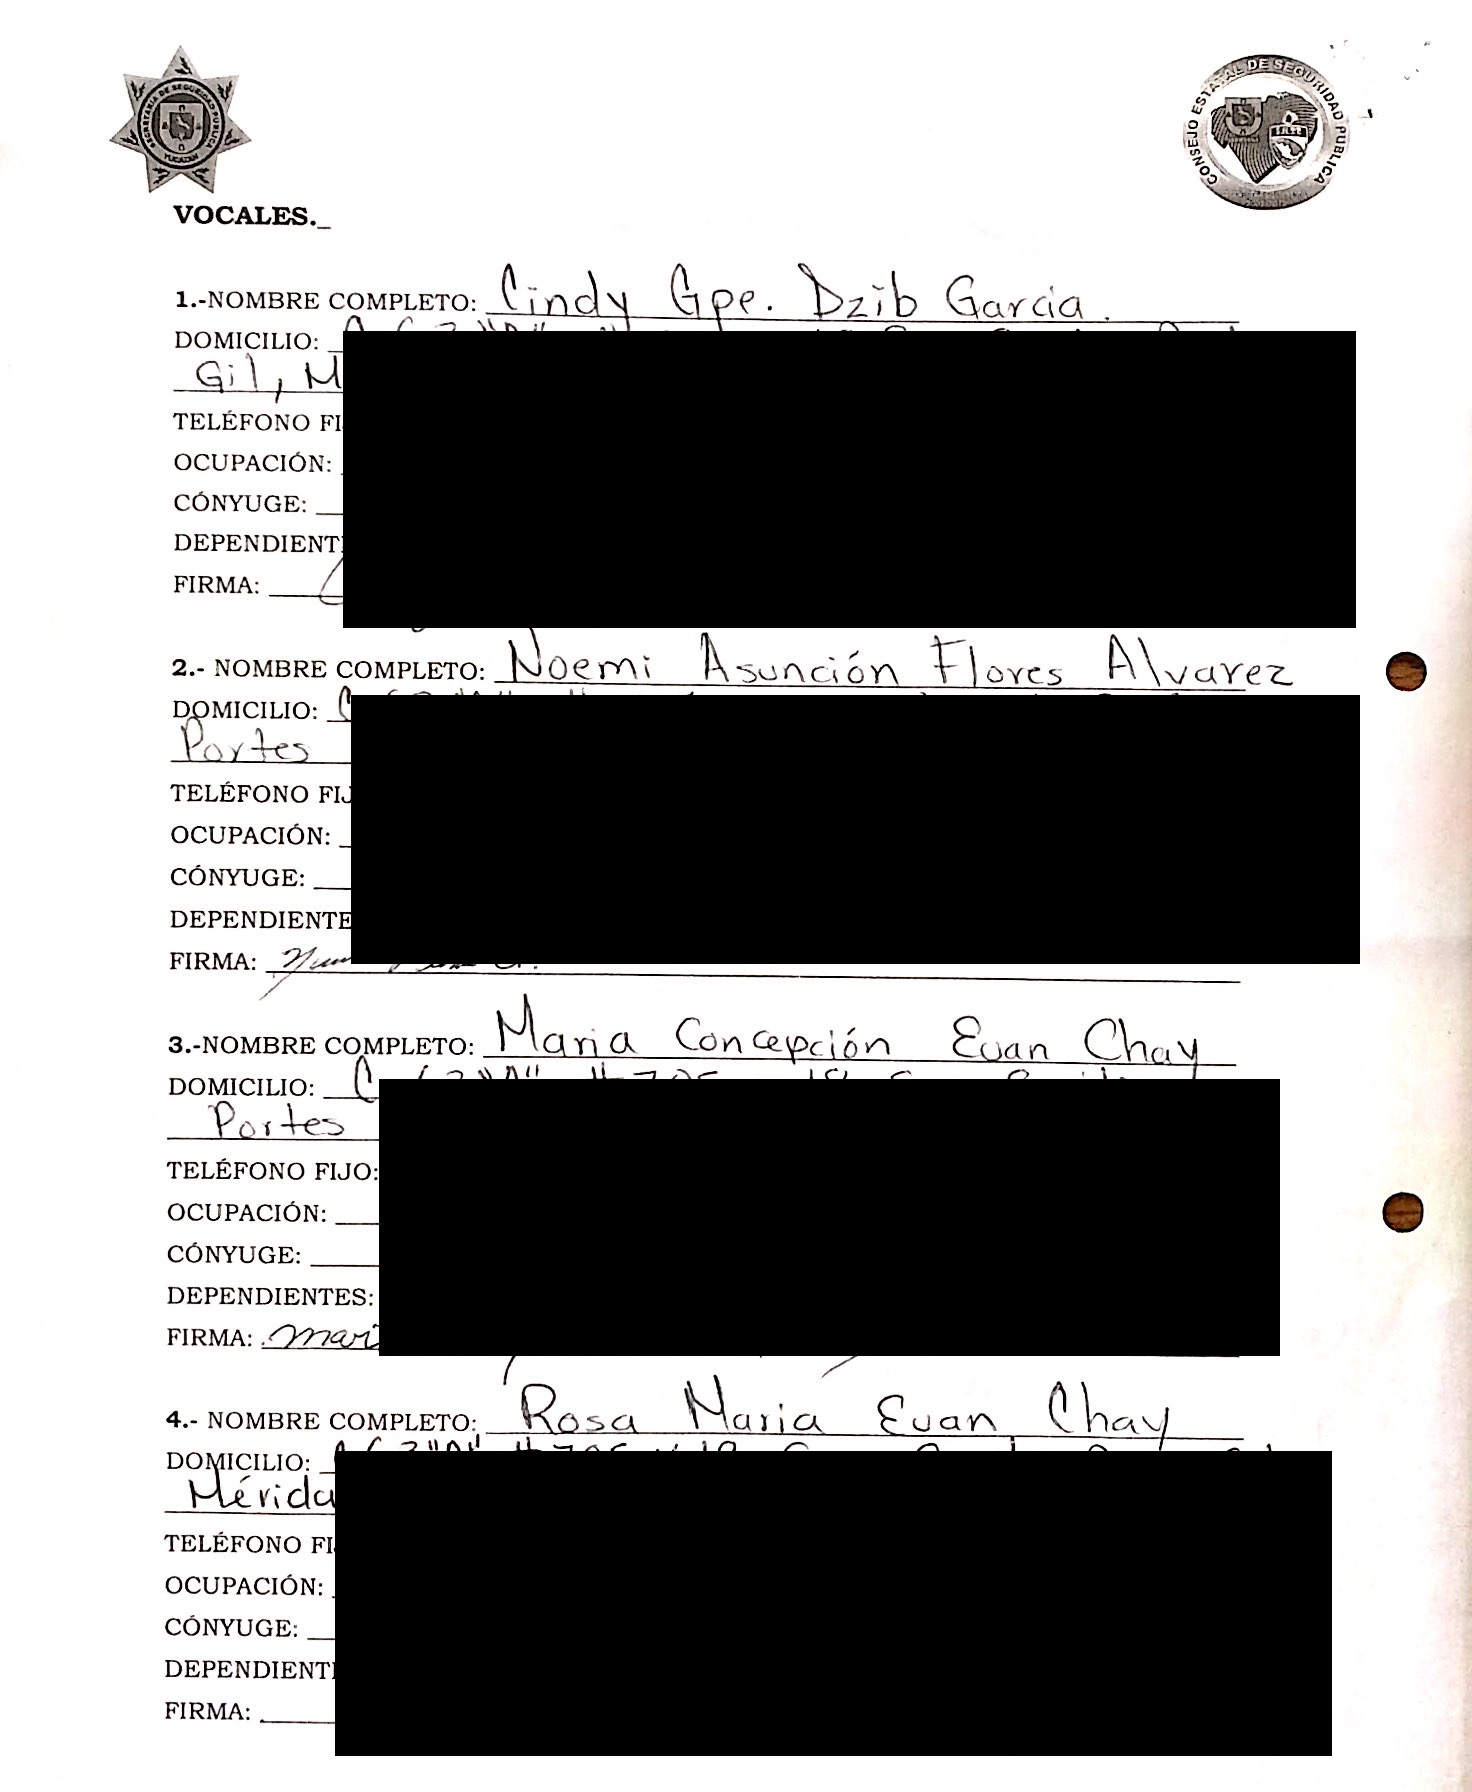 SECRETARIA DE SEGURIDAD PUBLICA
YUCATAN
CONSEJO ESTATAL DE SEGURIDAD PUBLICA
VOCALES._
1.-NOMBRE COMPLETO: Cindy Gpe. Dzib Garcia.
DOMICILIO:
Gil, M
TELÉFONO FI
OCUPACIÓN:
CÓNYUGE:
DEPENDIENT
FIRMA:
2.- NOMBRE COMPLETO: Noemi Asunción Flores Alvarez
DOMICILIO: C
Portes
TELÉFONO FIJ
OCUPACIÓN:
CÓNYUGE:
DEPENDIENTE
FIRMA:
3.-NOMBRE COMPLETO: Maria Concepción Euan Chay
DOMICILIO: C
Portes
TELÉFONO FIJO:
OCUPACIÓN:
CÓNYUGE:
DEPENDIENTES:
FIRMA: mari
4.- NOMBRE COMPLETO: Rosa Maria Euan Chay
DOMICILIO:
Mérida
TELÉFONO FI
OCUPACIÓN:
CÓNYUGE:
DEPENDIENT
FIRMA: